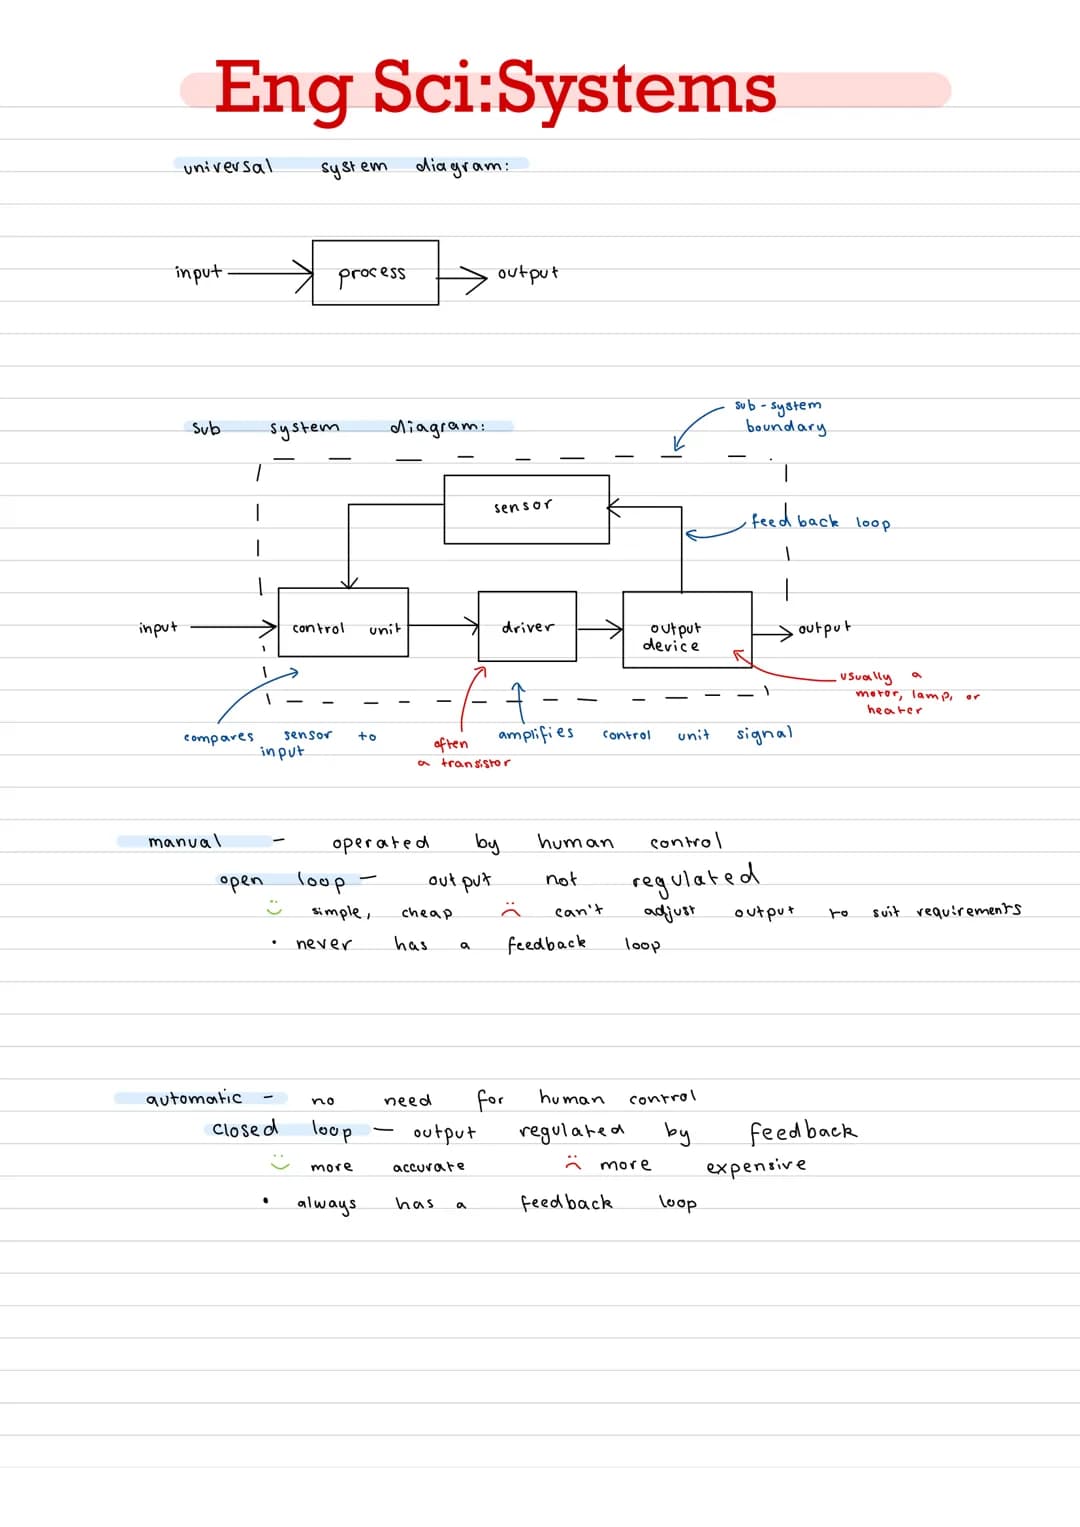 Eng Sci:Systems
universal system diagram:
input
process
output
sub-system
boundary
sub system diagram:
sensor
feedback loop
input
control unit
driver
output
device
output
usually a
motor, lamp, or
heater
compares sensor to
input
often
a transistor
amplifies control unit signal
manual - operated by human control
open loop - output not regulated
simple, cheap can't adjust output to suit requirements
• never has a feedback loop
automatic - no need for human control
closed loop - output regulated by feedback
more accurate more expensive
• always has a feedback loop